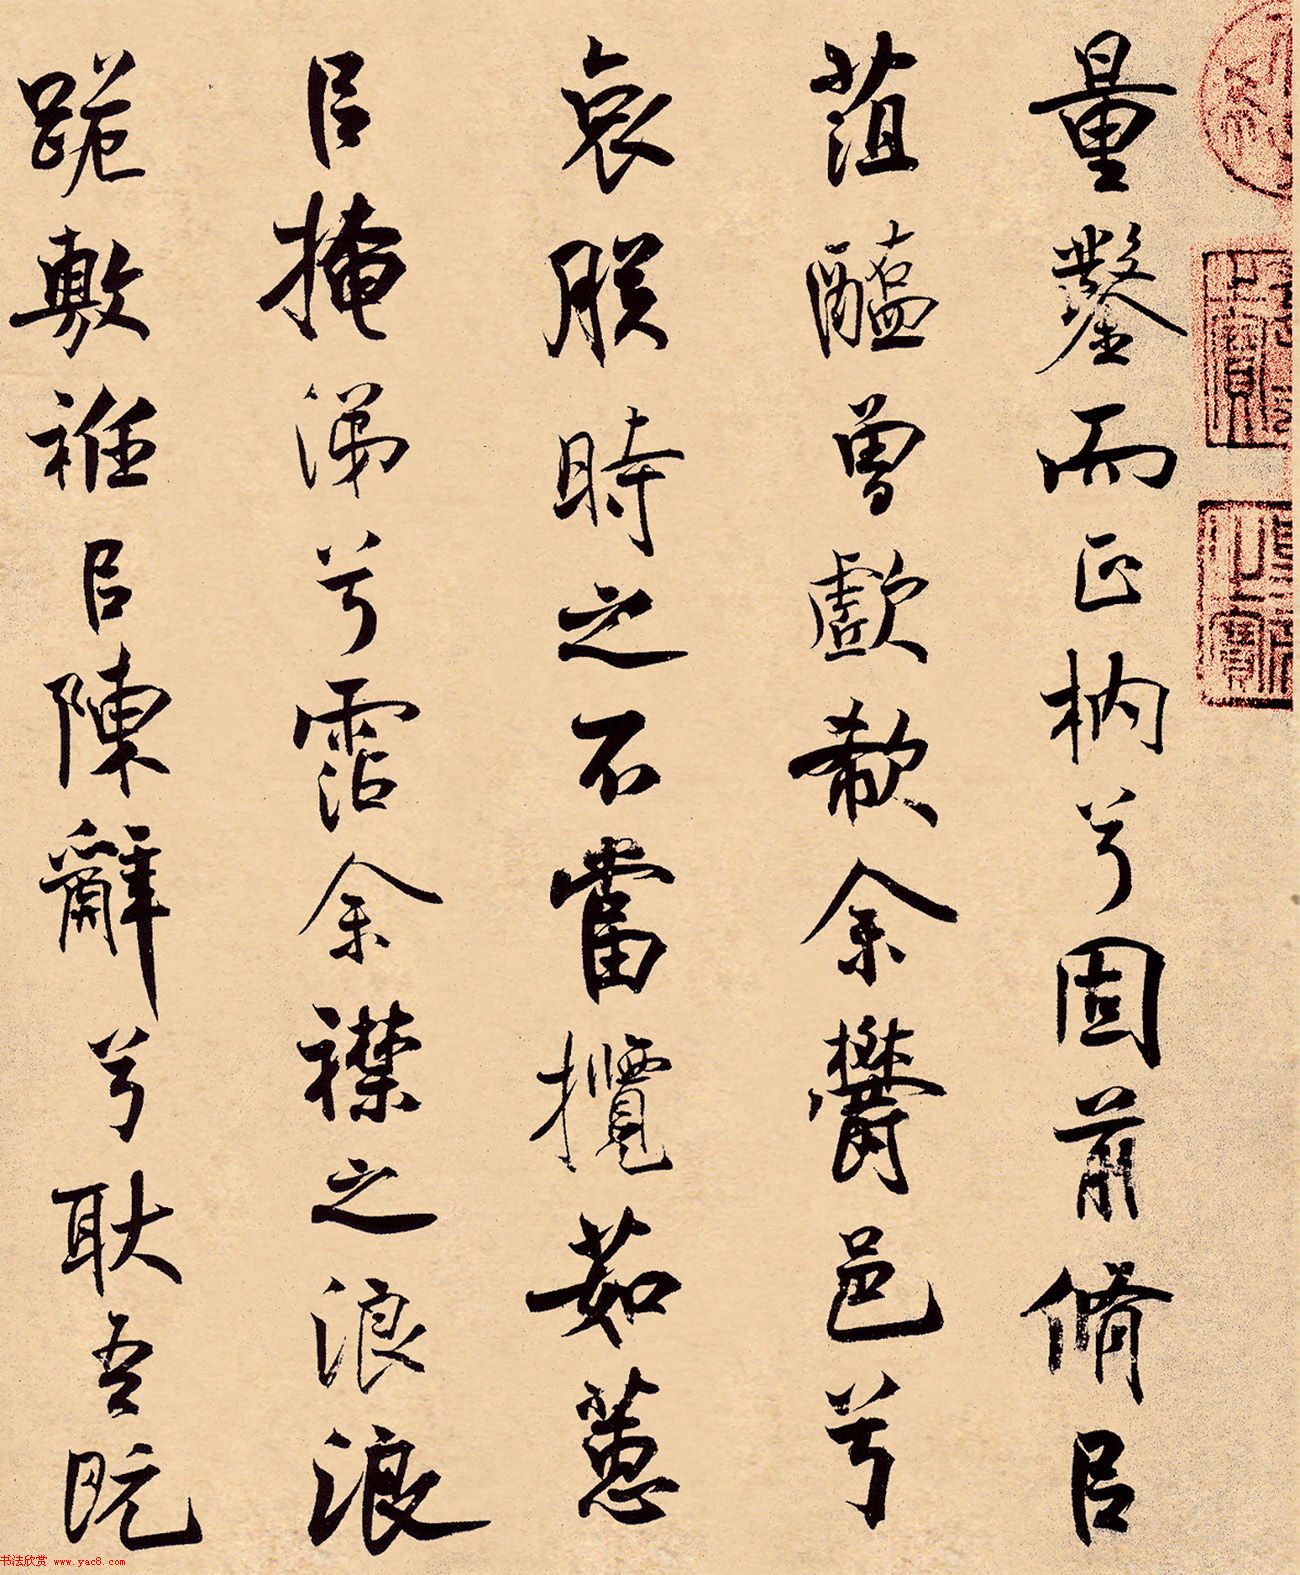 量鑿而正枘兮固前脩㠯
菹醢曾歔欷余鬱邑兮
哀朕時之不當攬茹蕙
㠯掩涕兮霑余襟之浪浪
跪敷衽㠯陳辭兮耿吾既
书法欣赏 www.yac8.com